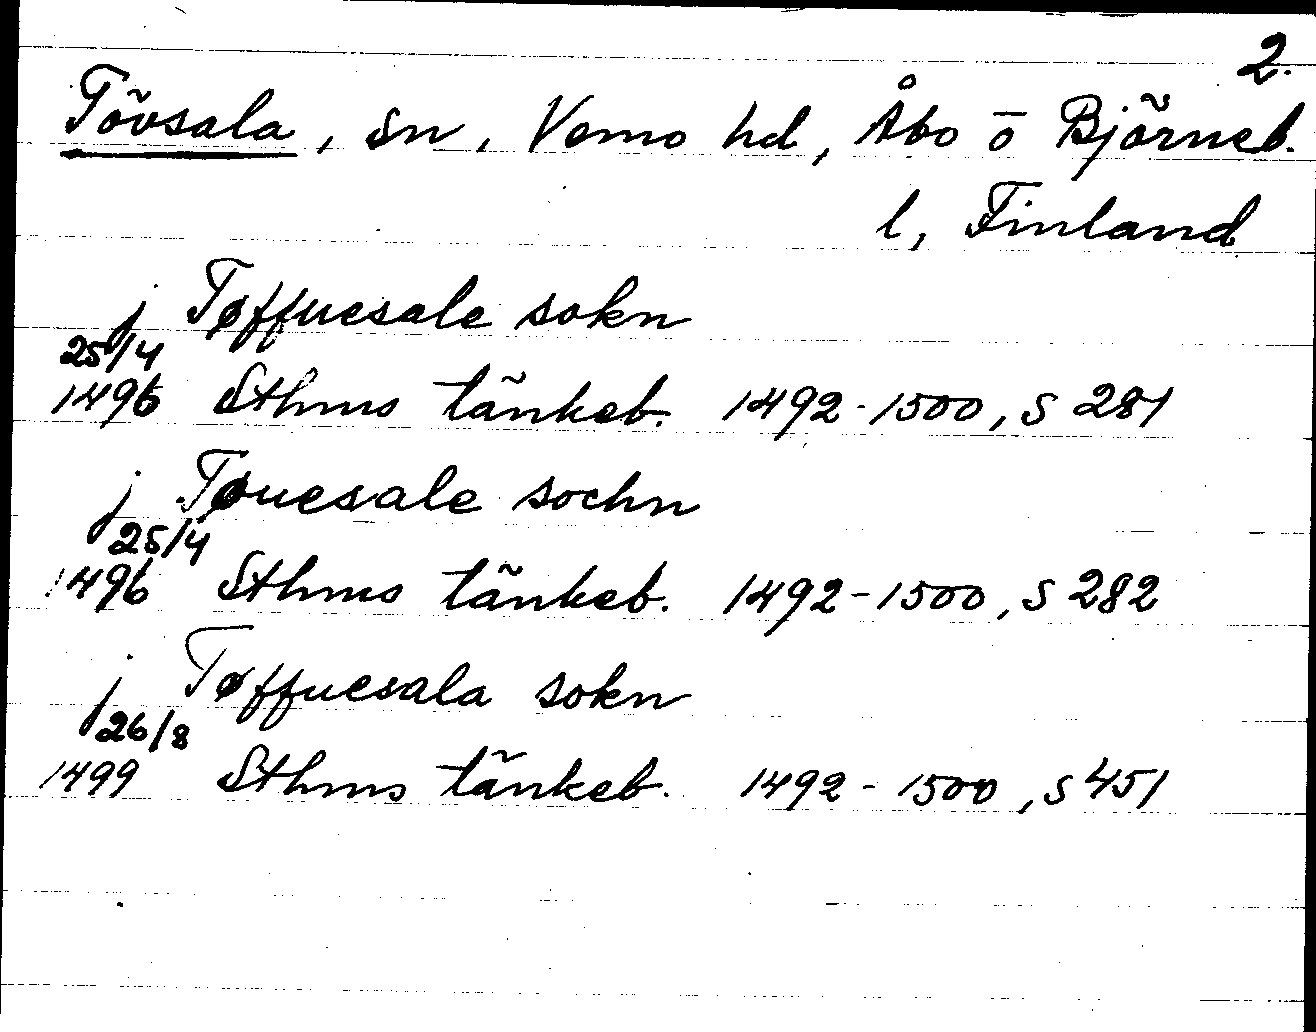 2.
Tövsala, sn, Vemo hd, Åbo o Björneb.
l, Finland
j Tøffuesale sokn
25/4
1496 Sthms tänkeb. 1492-1500, s 281
j Tøuesale sochn
25/4
1496 Sthms tänkeb. 1492-1500, s 282
j Tøffuesala sokn
26/8
1499 Sthms tänkeb. 1492-1500, s 451